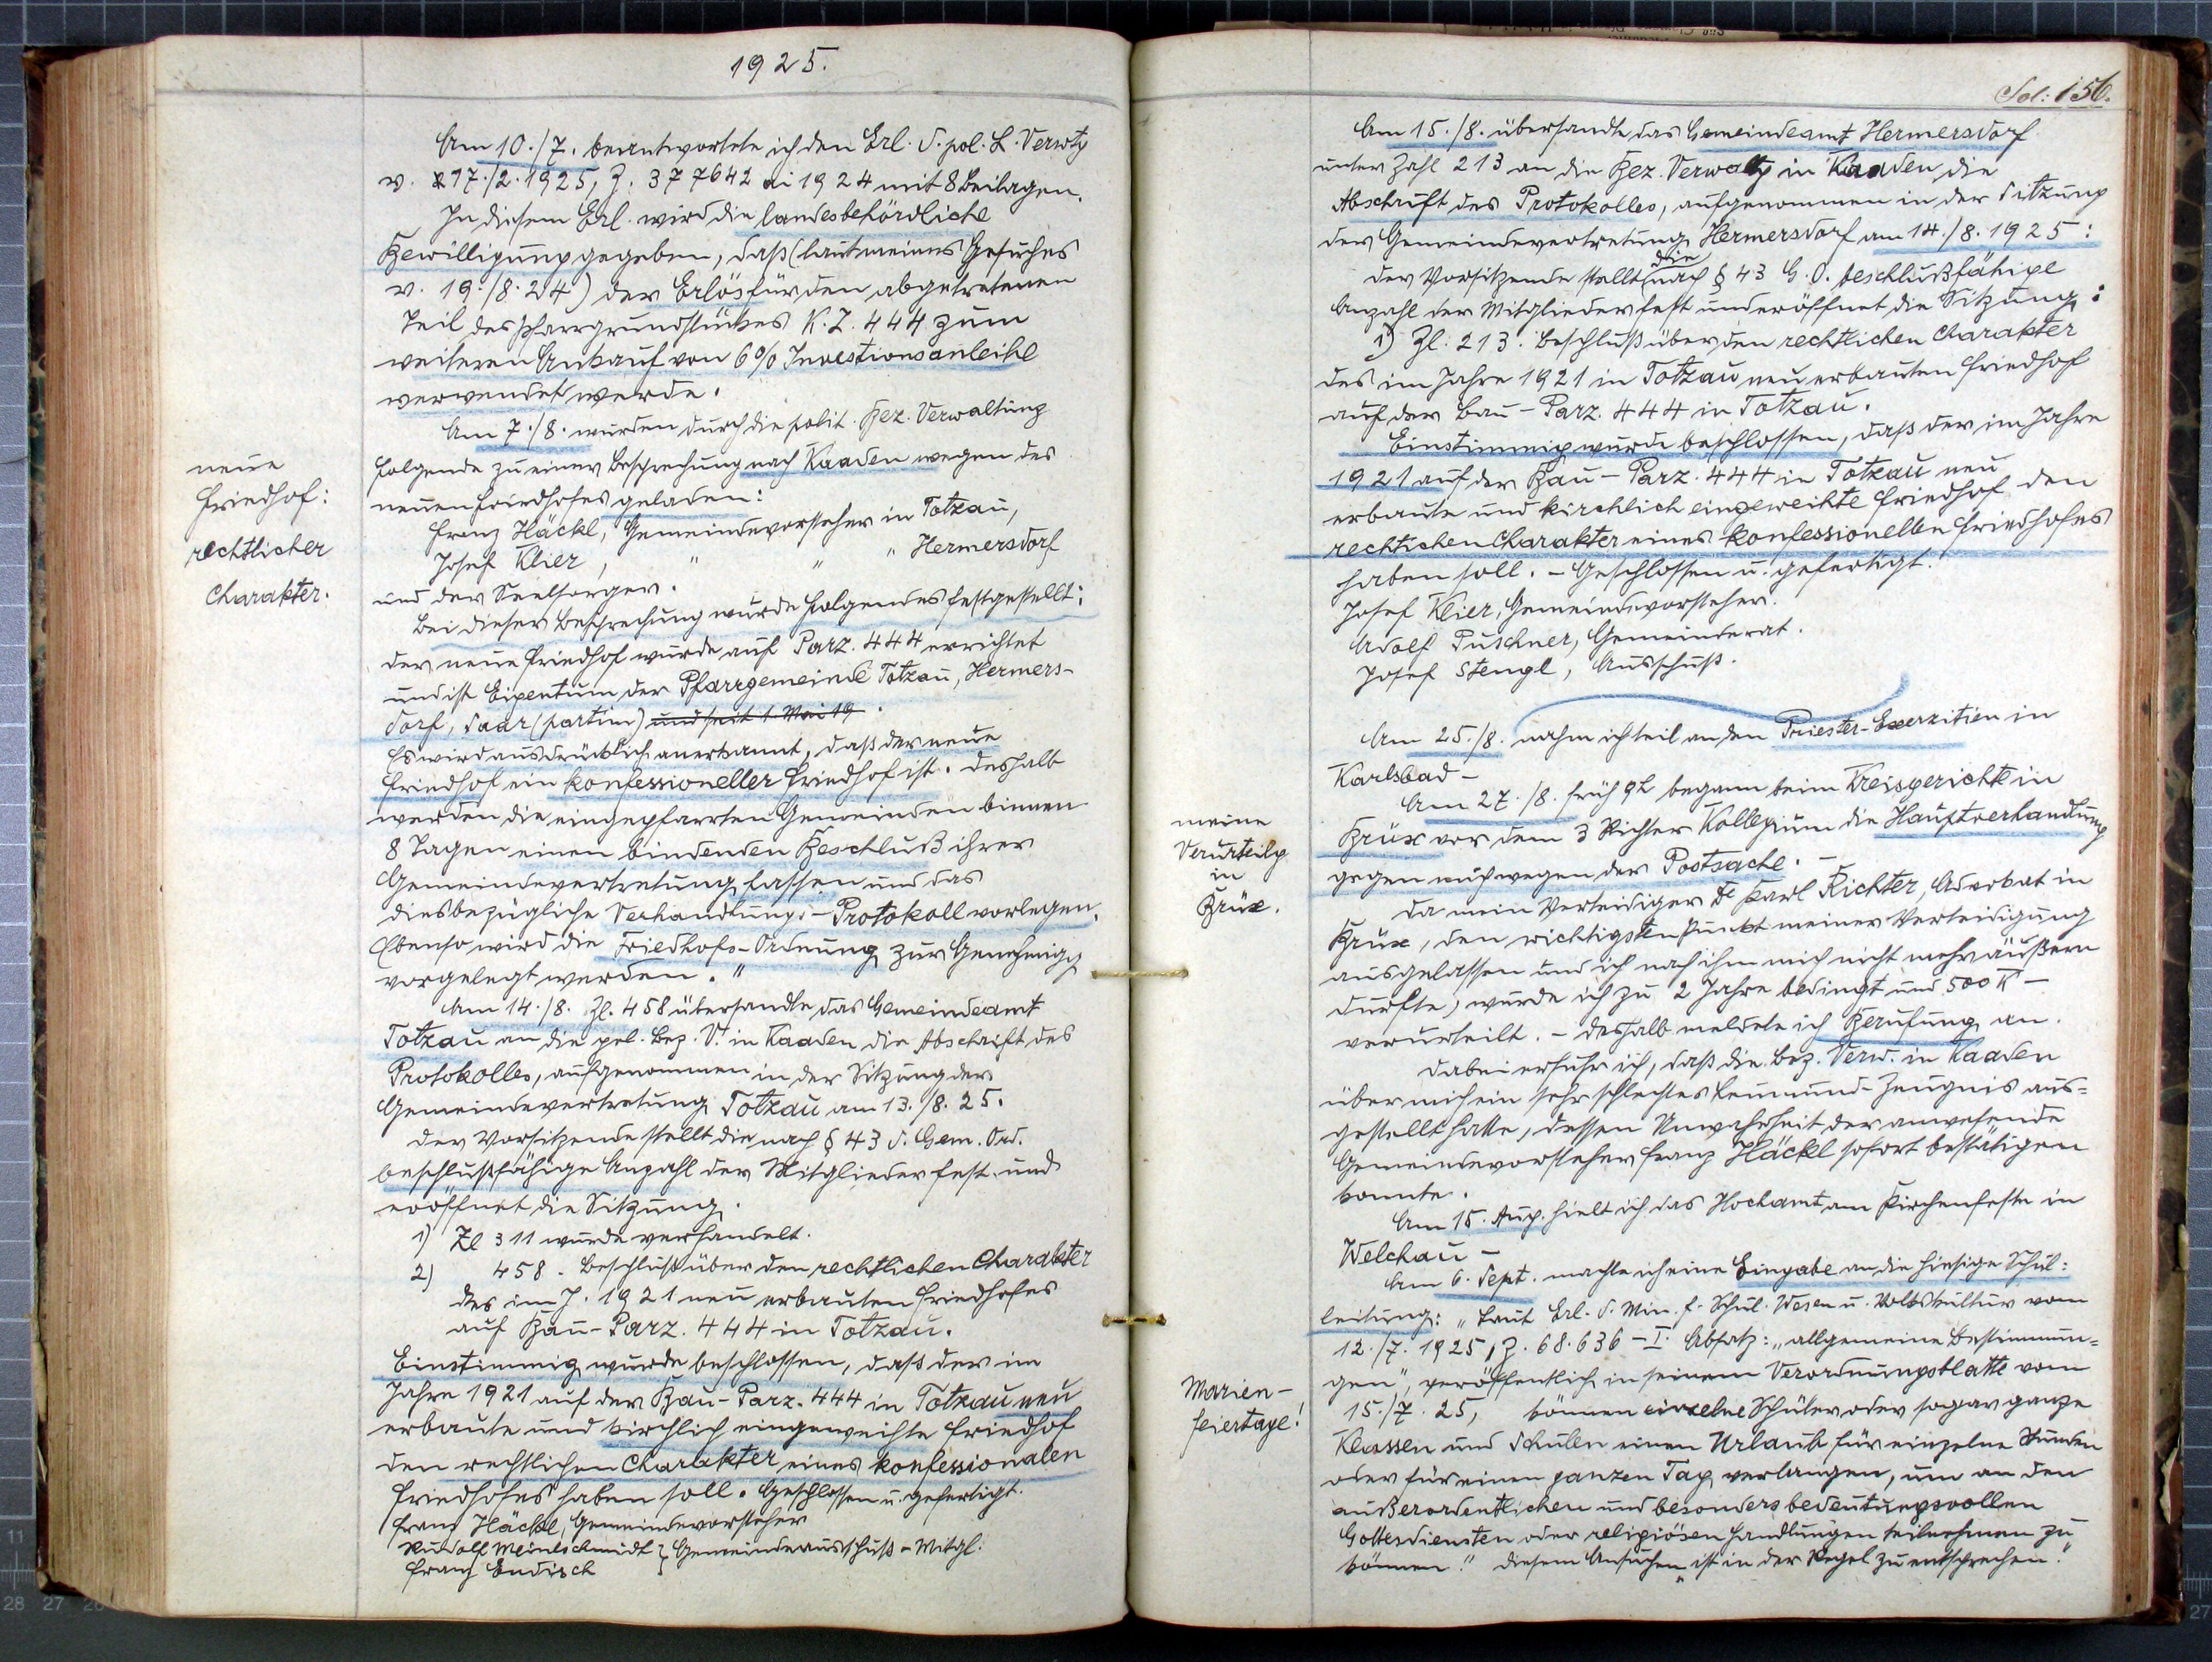 1925.
Am 10./7. beantwortete ich den Erl. d. pol. L. Verwtg
v. 17./2. 1925, Z. 377642 ai 1924 mit 8 Beilagen.
In diesem Erl. wird die landesbehördliche
Bewilligung gegeben, daß (laut meines Gesuches
v. 19./8. 24) der Erlös für den abgetretenen
Teil des Pfarrgrundstückes K. Z. 444 zum
weiteren Ankauf von 6% Investionsanleihe
verwendet werde.
Am 7./8. wurden durch die polit. Bez. Verwaltung
folgende zu einer Besprechung nach Kaaden wegen des
neuen Friedhofes geladen:
Franz Häckl, Gemeindevorsteher in Totzau,
Josef Klier, " " " Hermersdorf
und der Seelsorger.
Bei dieser Besprechung wurde folgendes festgestellt:
Der neue Friedhof wurde auf Parz. 444 errichtet
und ist Eigentum der Pfarrgemeinde Totzau, Hermers-
dorf, Saar (partim) und seit 1. Mai 19.
Es wird ausdrücklich anerkannt, daß der neue
Friedhof ein konfessioneller Friedhof ist. Deshalb
werden die eingepfarrten Gemeinden binnen
8 Tagen einen bindenden Beschluß ihrer
Gemeindevertretung fassen und das
diesbezügliche Verhandlungs-Protokoll vorlegen.
Ebenso wird die Friedhofs-Ordnung zur Genehmigg
vorgelegt werden."
Am 14./8. Zl. 458 übersandte das Gemeindeamt
Totzau an die pol. Bez. V. in Kaaden die Abschrift des
Protokolles, aufgenommen in der Sitzung der
Gemeindevertretung Totzau am 13./8. 25.
Der Vorsitzende stellt die nach § 43 d. Gem. Ord.
beschlußfähige Anzahl der Mitglieder fest und
eröffnet die Sitzung.
1) Zl 311 wurde verhandelt.
2) 458. Beschluß über den rechtlichen Charakter
des im J. 1921 neu erbauten Friedhofes
auf Bau-Parz. 444 in Totzau.
Einstimmig wurde beschlossen, daß der im
Jahre 1921 auf der Bau-Parz. 444 in Totzau neu
erbaute und kirchlich eingeweihte Friedhof
den rechtlichen Charakter eines konfessionalen
Friedhofes haben soll. Geschlossen u. gefertigt.
Franz Häckl, Gemeindevorsteher
Rudolf Meinlschmidt } Gemeindeausschuß-Mitgl.
Franz Endisch
neue
Friedhof:
rechtlicher
Charakter.
Fol: 156.
Am 15./8. übersandte das Gemeindeamt Hermersdorf
unter Zahl 213 an die Bez. Verwaltg in Kaaden die
Abschrift des Protokolles, aufgenommen in der Sitzung
der Gemeindevertretung Hermersdorf am 14./8. 1925:
Der Vorsitzende stellt die nach § 43 G. O. beschlußfähige
Anzahl der Mitglieder fest und eröffnet die Sitzung:
1) Zl. 213. Beschluß über den rechtlichen Charakter
des im Jahre 1921 in Totzau neu erbauten Friedhof
auf der Bau-Parz. 444 in Totzau.
Einstimmig wurde beschlossen, daß der im Jahre
1921 auf der Bau-Parz. 444 in Totzau neu
erbaute und kirchlich eingeweihte Friedhof den
rechtlichen Charakter eines konfessionellen Friedhofes
haben soll. - Geschlossen u. gefertigt.
Josef Klier, Gemeindevorsteher.
Adolf Puschner, Gemeinderat.
Josef Stengl, Ausschuß.
Am 25./8. nahm ich teil an den Priester-Exerzitien in
Karlsbad -
Am 27./8. früh 9h begann beim Kreisgerichte in
Brüx vor dem 3 Richter Kollegium die Hauptverhandlung
gegen mich wegen der Postsache. -
Da mein Verteidiger Dr Karl Richter, Advokat in
Brüx, den wichtigsten Punkt meiner Verteidigung
ausgelassen und ich nach ihm mich nicht mehr äußern
durfte, wurde ich zu 2 Jahre bedingt und 500 K -
verurteilt. - Deshalb meldete ich Berufung an.
Dabei erfuhr ich, daß die Bez. Verw. in Kaaden
über mich ein sehr schlechtes Leumund-Zeugnis aus=
gestellt hatte, dessen Unwahrheit der anwesende
Gemeindevorsteher Franz Häckl sofort bestätigen
konnte.
Am 15. Aug. hielt ich das Hochamt am Kirchenfeste in
Welchau -
Am 6. Sept. machte ich eine Eingabe an die hiesige Schul=
leitung: "Laut Erl. d. Min. f. Schul. Wesen u. Volkskultur vom
12./7. 1925, Z. 68.636 - I. Absatz: "allgemeine Bestimmun=
gen", veröffentlich in seinem Verordnungsblatte vom
15./7. 25, können einzelne Schüler oder sogar ganze
Klassen und Schulen einen Urlaub für einzelne Stunden
oder für einen ganzen Tag verlangen, um an den
außerordentlichen und besonders bedeutungsvollen
Gottesdiensten oder religiösen Handlungen teilnehmen zu
können." Diesem Ansuchen "ist in der Regel zu entsprechen."
meine
Verurteilg
in
Brüx.
Marien-
feiertage!